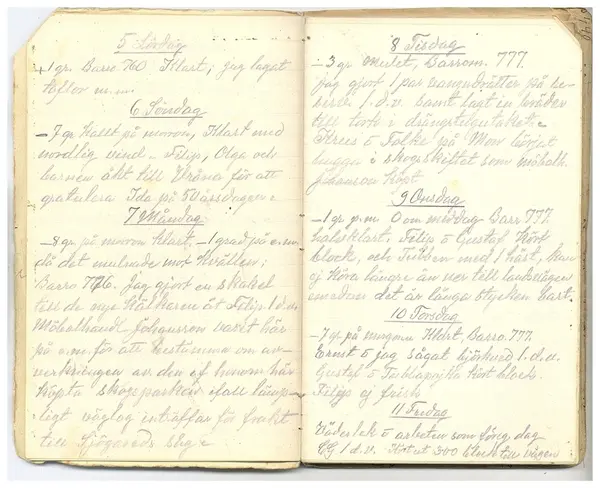 5 Lördag
+1 gr. Barro 760 Klart, jag lagat
taflor m.m.
6 Söndag
-7 gr kallt på moron, Klart med
nordlig vind - Filip, Olga och
barnen åkt till för att
gratulera Ida på 50 årsdagen.
7 Måndag
-8 gr på moron klart, -1 grad på e.m.
då det mulnade mot kvällen;
Barro 776. Jag gjort en skakel
till de nye Kälkaren åt Filip 1 d.v.
Möbelhandl. Johansson varit här
på e.m. för att bestämma om
av den af honom här
köpta skogsparken ifall lämp-
ligt väglag inträffar för frakt
till Sjögareds såg.
8 Tisdag
-3 gr. Mulet, Barrom. 777.
Jag gjort 1 par på be-
1 d.v. samt lagt in
till torfs i
Kress o Folke på Mon börjat
hugga i skogsskiftet som möbelh.
Johanson köpt
9 Onsdag
-1 gr. f.m. 0 om meddag Barr 777.
halfklart. Filip o Gustaf Kört
block, och med 1 häst, kan
ej köra längre än ner till landsvägen
emedan det är långa stycken bart.
10 Torsdag
-7 gr på morgonen Klart, Barro. 777.
Ernst o jag sågat björkved 1 d.v.
Gustaf o kört block.
Filip ej frisk
11 Fredag
Väderlek o arbeten som föreg. dag
1 d.v. Kört ut 300 block till vägen